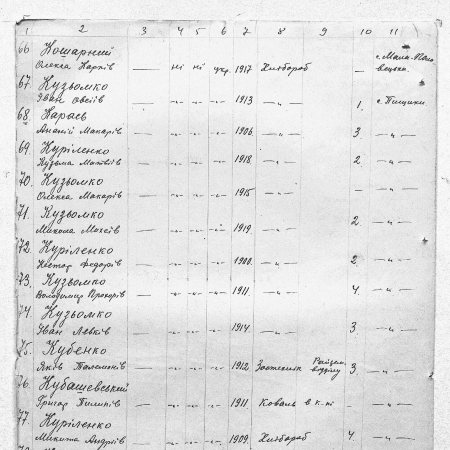 1 2 3 4 5 6 7 8 9 10 11
66 Кошарний
Олекса Карпів — ні ні укр. 1917 Хлібороб — с. Мала
67. Кузьомко
Іван Овсіїв — -„- -„- -„- 1913 -„- 1. с. Пищики
68. Карась
Ананій Макарів — -„- -„- -„- 1906 -„- 3 -„-
69 Куріленко
Кузьма Матвіїв — -„- -„- -„- 1918 -„- 2 -„-
70. Кузьомко
Олекса Макарів — -„- -„- -„- 1915 -„- — -„-
71. Кузьомко
Микола Мохеїв — -„- -„- -„- 1919 -„- 2 -„-
72. Куріленко
Нестор Федорів — -„- -„- -„- 1900 -„- 2 -„-
73. Кузьомко
Володимир Прохорів — -„- -„- -„- 1911 -„- 4. -„-
74. Кузьомко
Іван Левків — -„- -„- -„- 1914 -„- 3 -„-
75. Кубенко
Яків — -„- -„- -„- 1912 3 -„-
76. Кубашевський
Григор Пилипів — -„- -„- -„- 1911 Коваль в к-пі — -„-
77. Куріленко
Микита Андріїв — -„- -„- -„- 1909 Хлібороб 4. -„-